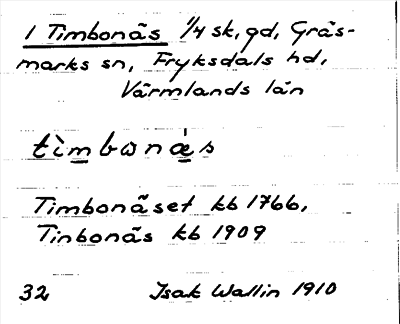 1 Timbonäs 1/4 sk, gd, Gräs-
marks sn, Fryksdals hd,
Värmlands län
tìmbωnǽs
Timbonäset kb 1766,
Tinbonäs kb 1909
32 Isak Wallin 1910